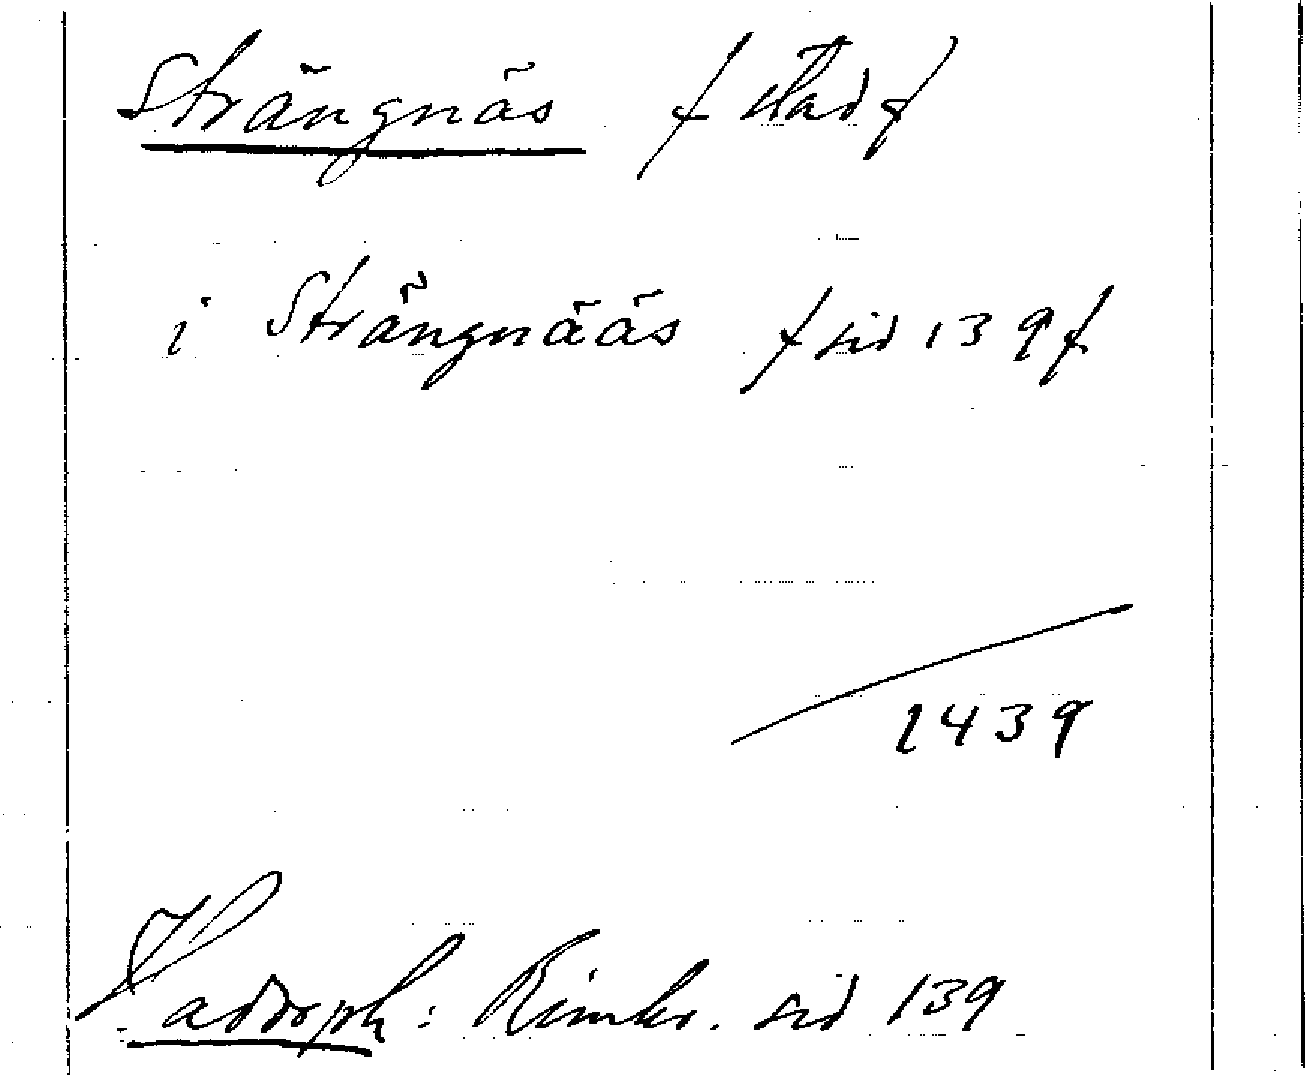 Strängnäs / stad /
i Strängnääs / sid 139 /
1439
Hadorph: Rimkr. sid 139